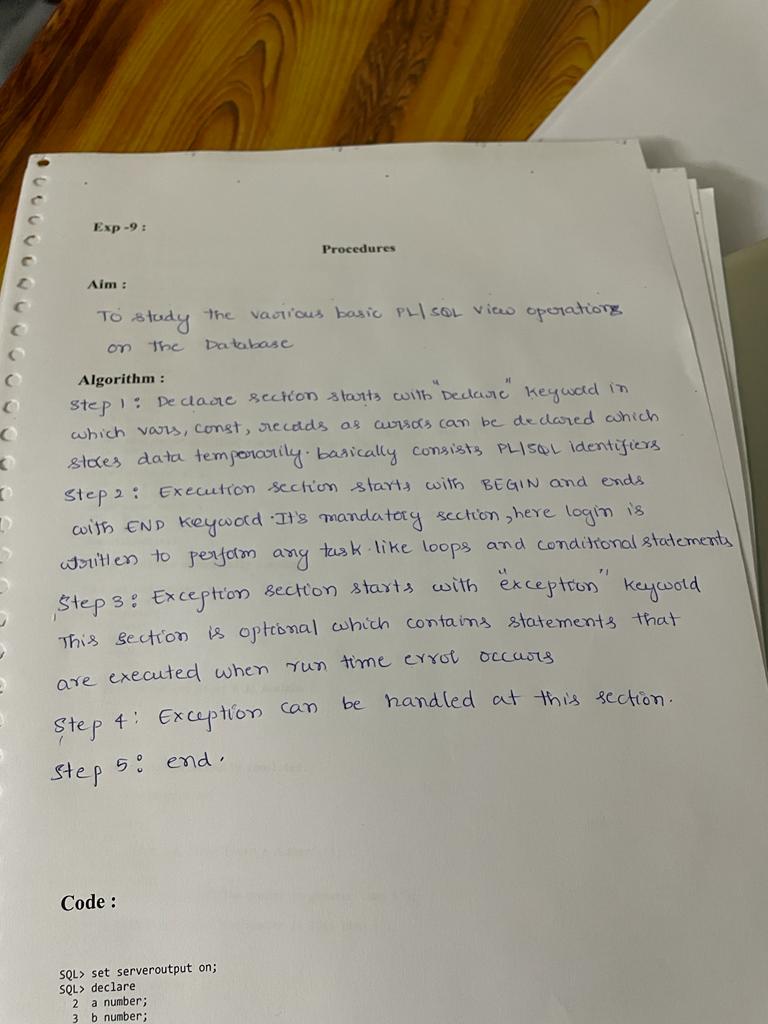 Exp -9 :
Procedures
Aim :
To study the various basic PL/SQL view operations
on the Database
Algorithm :
Step 1 : Declare section starts with "Declare" keyword in
which vars, const, records as cursors can be declared which
stores data temporarily. basically consists PL/SQL identifiers
Step 2 : Execution section starts with BEGIN and ends
with END keyword. It's mandatory section, here login is
written to perform any task like loops and conditional statements
Step 3 : Exception section starts with "exception" keyword
This section is optional which contains statements that
are executed when run time error occurs
Step 4 : Exception can be handled at this section.
Step 5 : end.
Code :
SQL> set serveroutput on;
SQL> declare
2 a number;
3 b number;